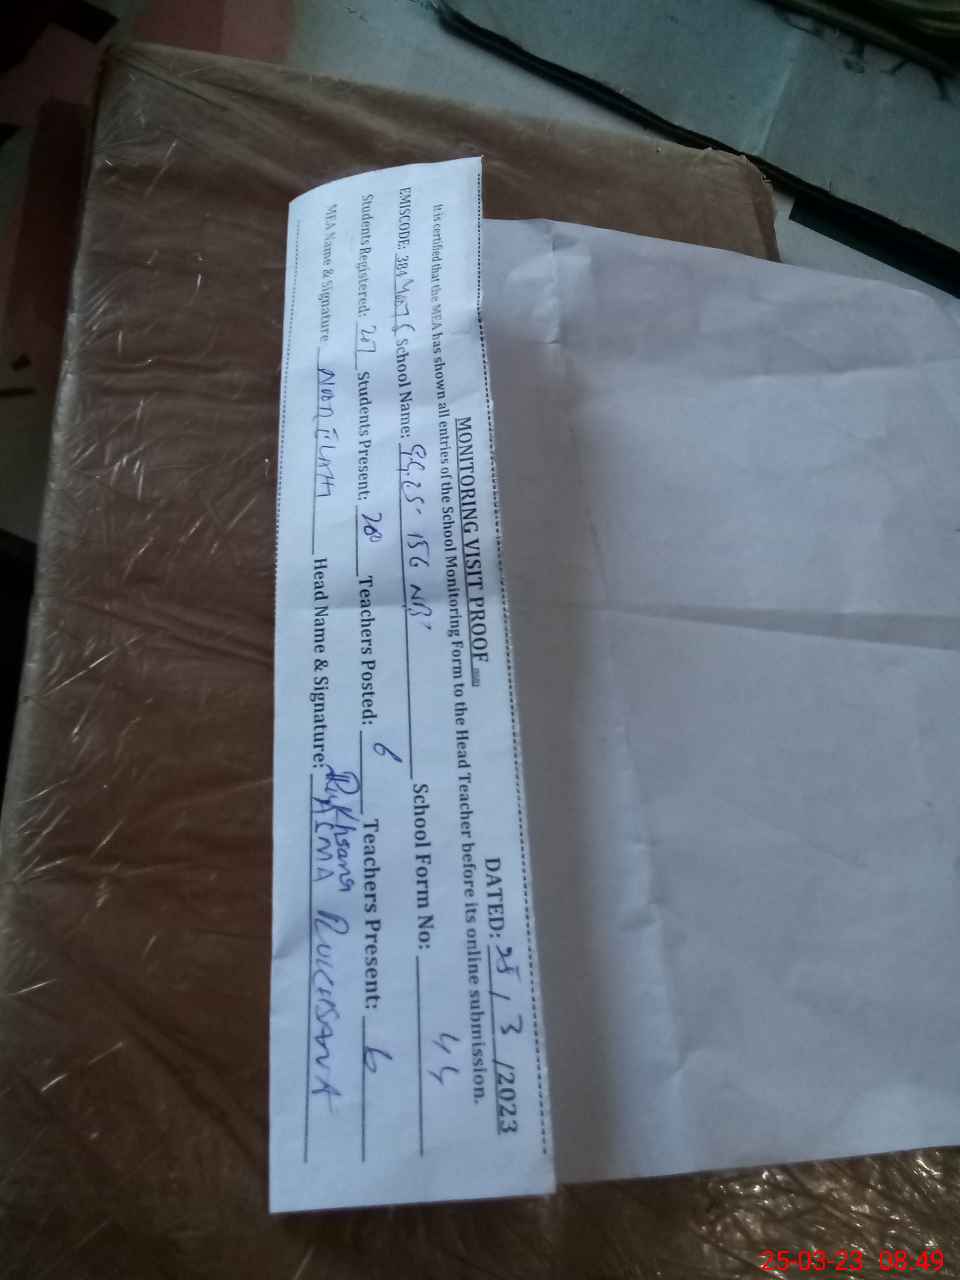 MONITORING VISIT PROOF
DATED: 25 / 3 /2023
It is certified that the MEA has shown all entries of the School Monitoring Form to the Head Teacher before its online submission.
EMISCODE: School Name: 156 NB School Form No: 44
Students Registered: 207 Students Present: 200 Teachers Posted: 6 Teachers Present: 6
MEA Name & Signature Noor ILAHI Head Name & Signature: Rukhsana
RUKHSANA
25-03-23 08:49